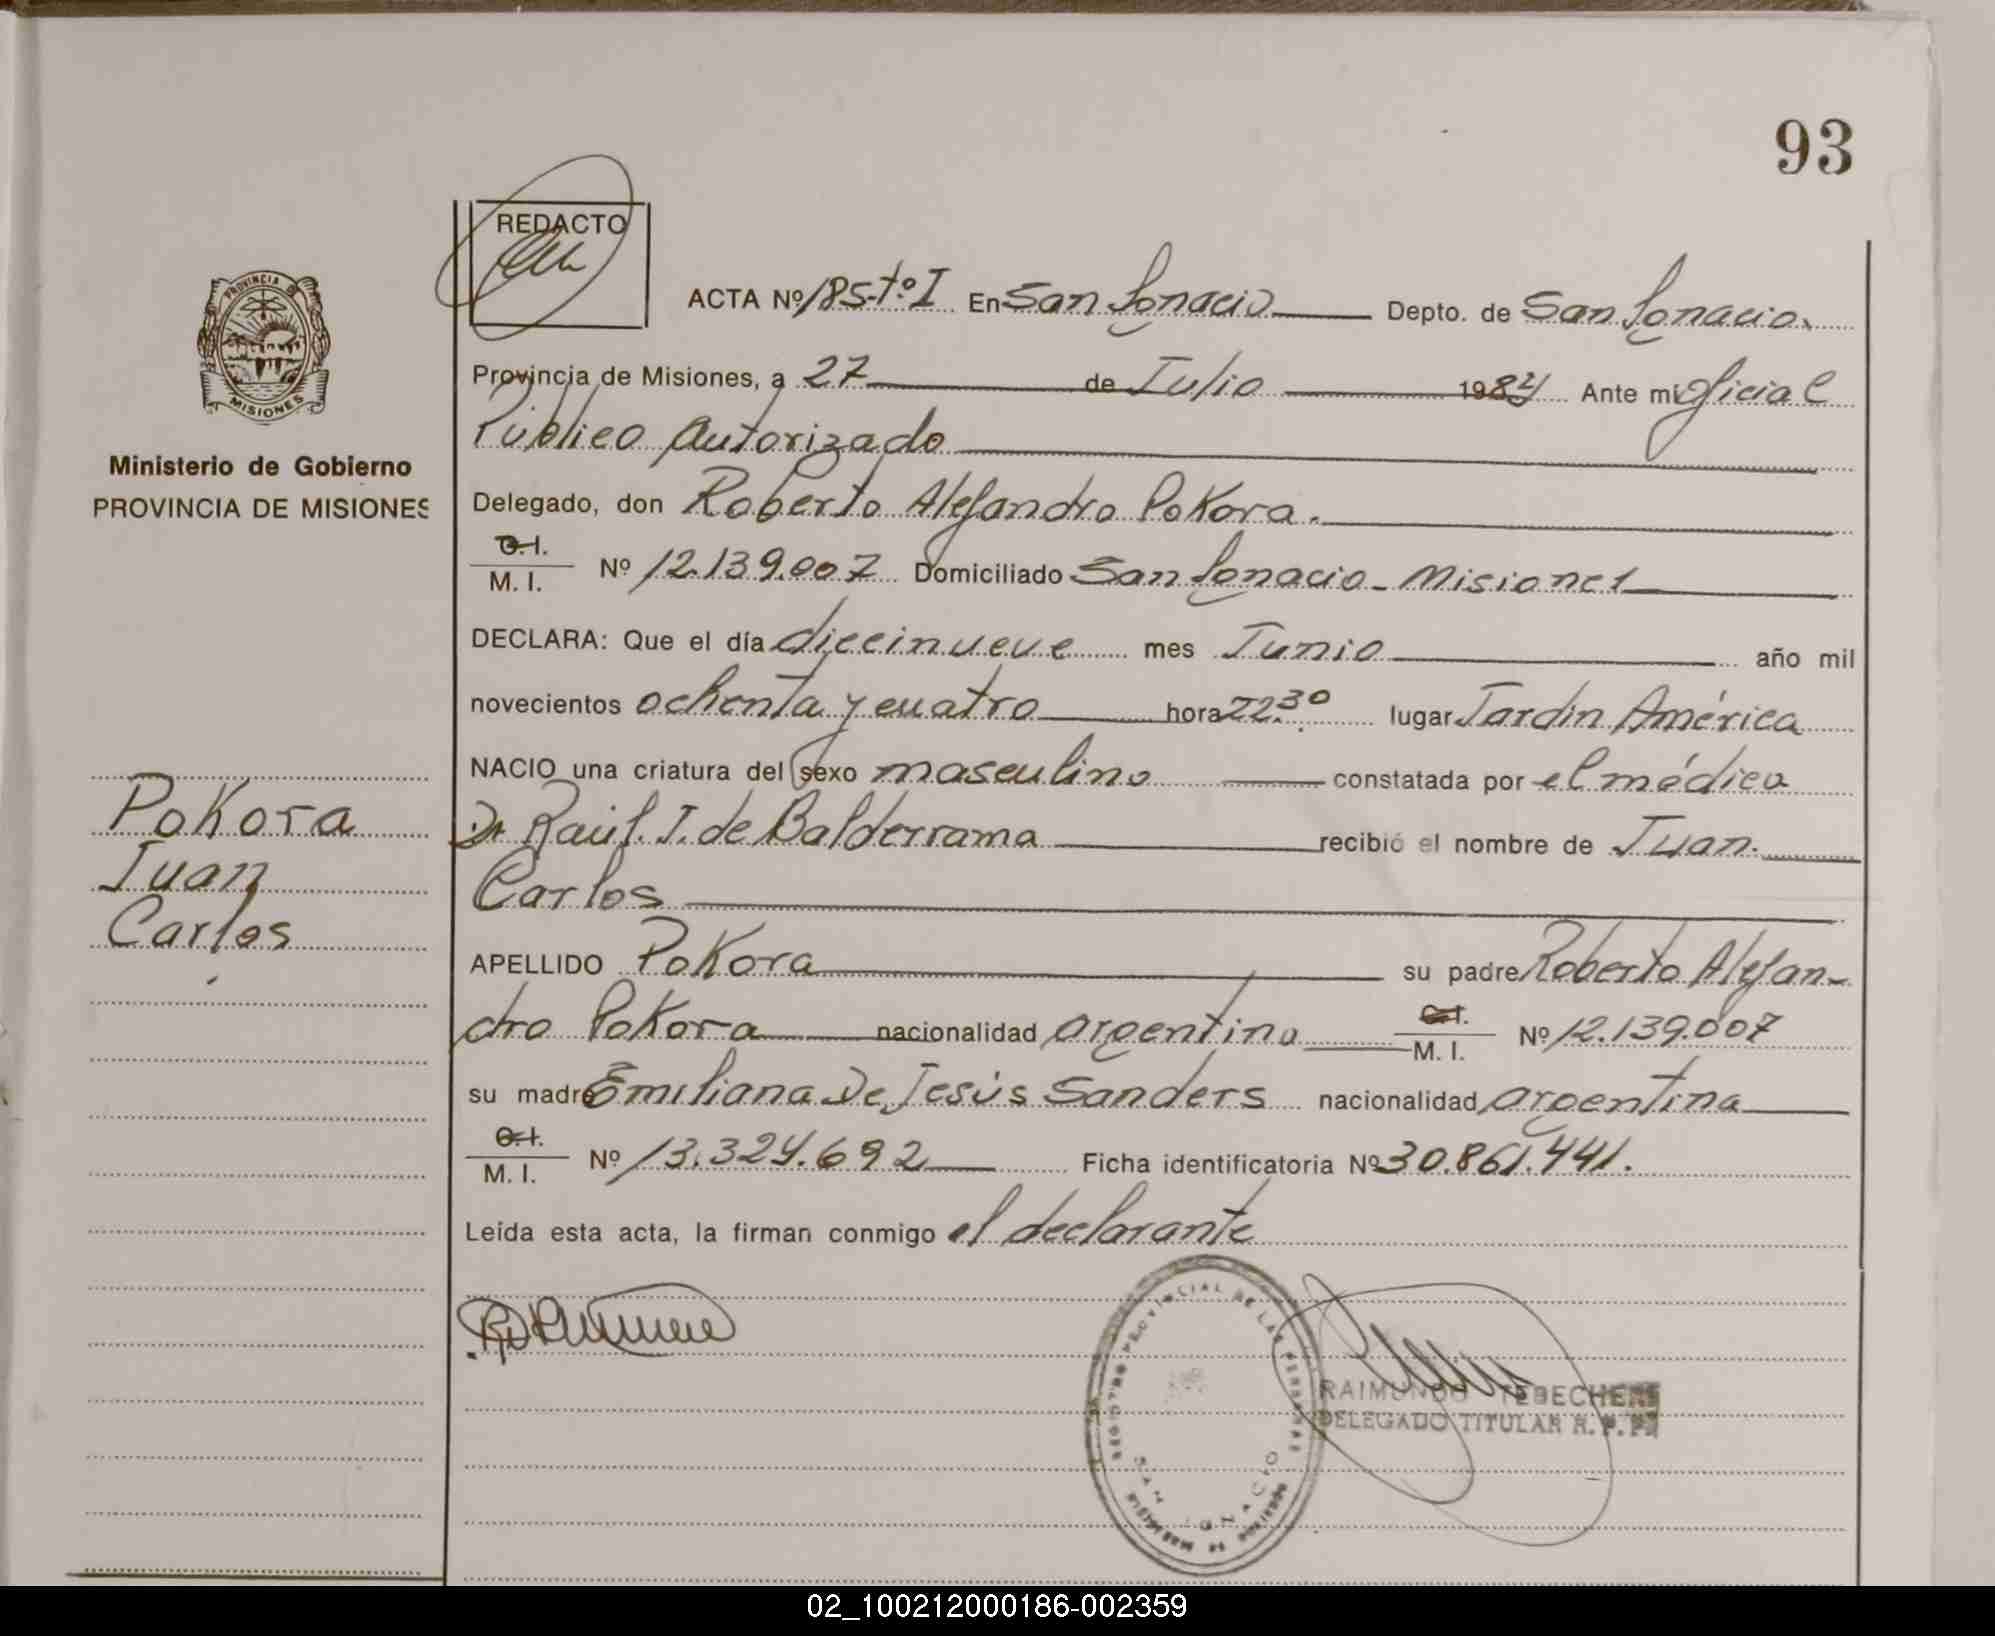 93
REDACTO
PROVINCIA DE
MISIONES
ACTA Nº 185-tº I En San Ignacio Depto. de San Ignacio.
Provincia de Misiones, a 27 de Julio 1984 Ante mi Oficial
Público Autorizado
Ministerio de Gobierno
PROVINCIA DE MISIONES
Delegado, don Roberto Alejandro Pokora.
C.I.
M. I. Nº 12.139.007 Domiciliado San Ignacio - Misiones
DECLARA: Que el día diecinueve mes Junio año mil
novecientos ochenta y cuatro hora 22.30 lugar Jardín América
NACIO una criatura del sexo masculino constatada por el médico
Dr Raúl. J. de Balderrama recibió el nombre de Juan.
Carlos
Pokora
Juan
Carlos
APELLIDO Pokora su padre Roberto Alejan-
dro Pokora nacionalidad argentino C.I. M. I. Nº 12.139.007
su madre Emiliana De Jesús Sanders nacionalidad argentina
C.I.
M. I. Nº 13.324.692 Ficha identificatoria Nº 30.861.441.
Leída esta acta, la firman conmigo el declarante
REGISTRO PROVINCIAL DE LAS PERSONAS
SAN IGNACIO
RAIMUNDO TEBECHERI
DELEGADO TITULAR R. P. P.
02_100212000186-002359